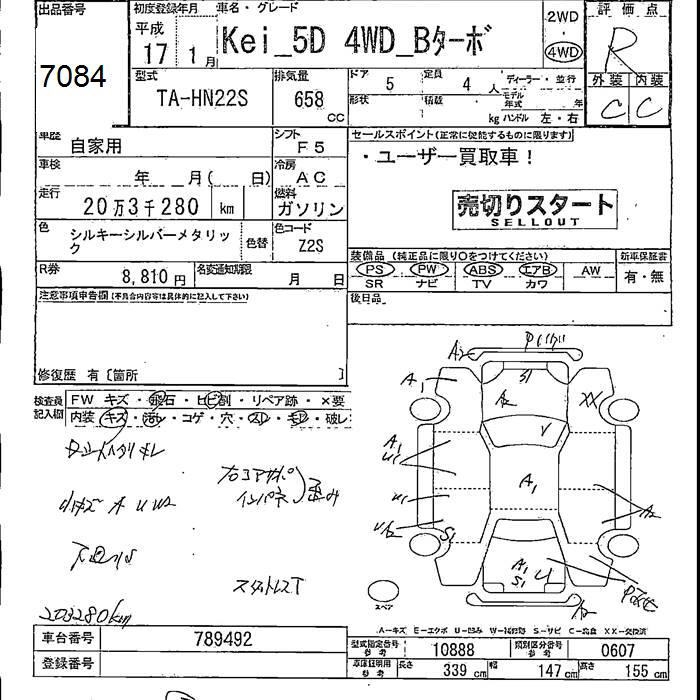 出品番号
7084
初度登録年月
平成
17 1月
車名・グレード
Kei_5D 4WD_Bターボ
2WD
4WD
評価点
R
外装 内装
C C
型式
TA-HN22S
排気量
658
CC
ドア 5
定員 4人
ディーラー・並行
形状
積載 kg
モデル年式 年
ハンドル 左・右
車歴
自家用
シフト
F5
車検
年 月( 日)
冷房
AC
走行
20万3千280 km
燃料
ガソリン
色
シルキーシルバーメタリック
色替
色コード
Z2S
R券
8,810円
名変通知期限
月 日
セールスポイント(正常に従能するものに限ります)
・ユーザー買取車!
売切りスタート
SELLOUT
装備品(純正品に限り○をつけてください)
PS PW ABS エアB AW
SR ナビ TV カワ
新車保証書
有・無
後日品
注意事項申告欄(不具合内容等は具体的に記入して下さい)
修復歴 有〔箇所 〕
検査員記入欄
FW キズ・飛石・ヒビ割・リペア跡・×要
内装 キズ・汚レ・コゲ・穴・スレ・モレ・破レ
インパネ
203280km
A2
A1
31
A2
XX
V
A1
U1
A1
U1
A2
S1
A2
A1
S1
U
A2
スペア
A-キズ E-エクボ U-凹み W-補修跡 S-サビ C-腐食 XX-交換済
車台番号
789492
登録番号
型式指定番号
参考
10888
類別区分番号
参考
0607
車庫証明用
参考
長さ 339 cm
幅 147 cm
高さ 155 cm